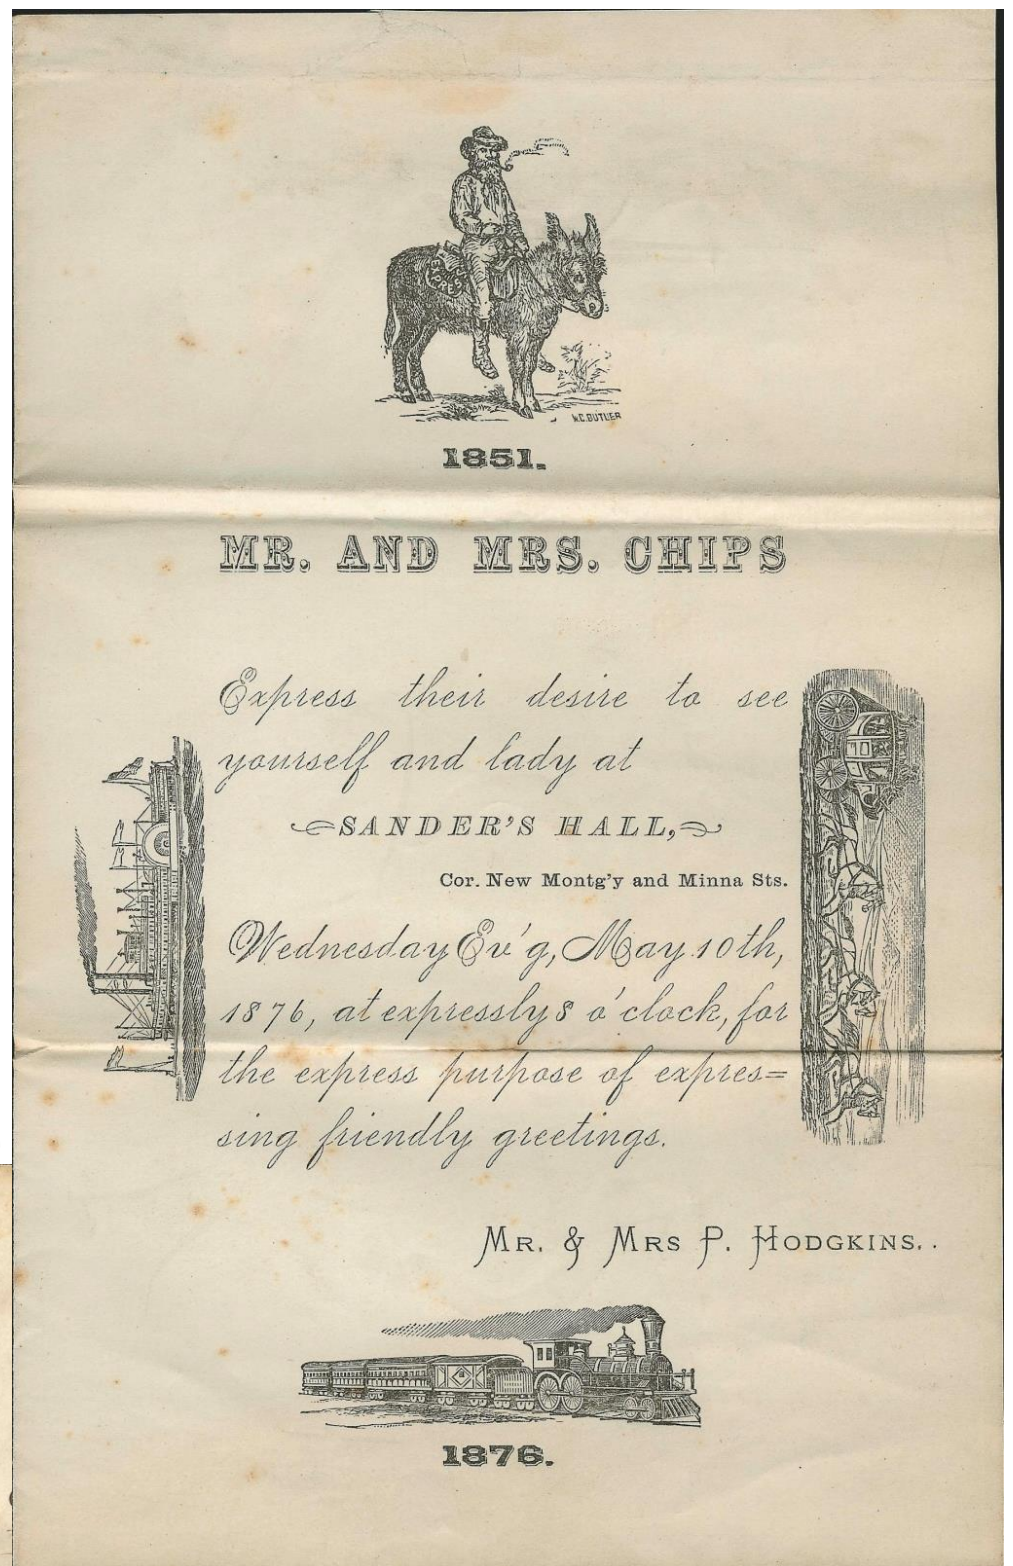 EXPRESS
W.C. BUTLER
1851.
MR. AND MRS. CHIPS
Express their desire to see
yourself and lady at
SANDER'S HALL,
Cor. New Montg'y and Minna Sts.
Wednesday Ev'g, May 10th,
1876, at expressly 8 o'clock, for
the express purpose of expres=
sing friendly greetings.
MR. & MRS P. HODGKINS..
1876.